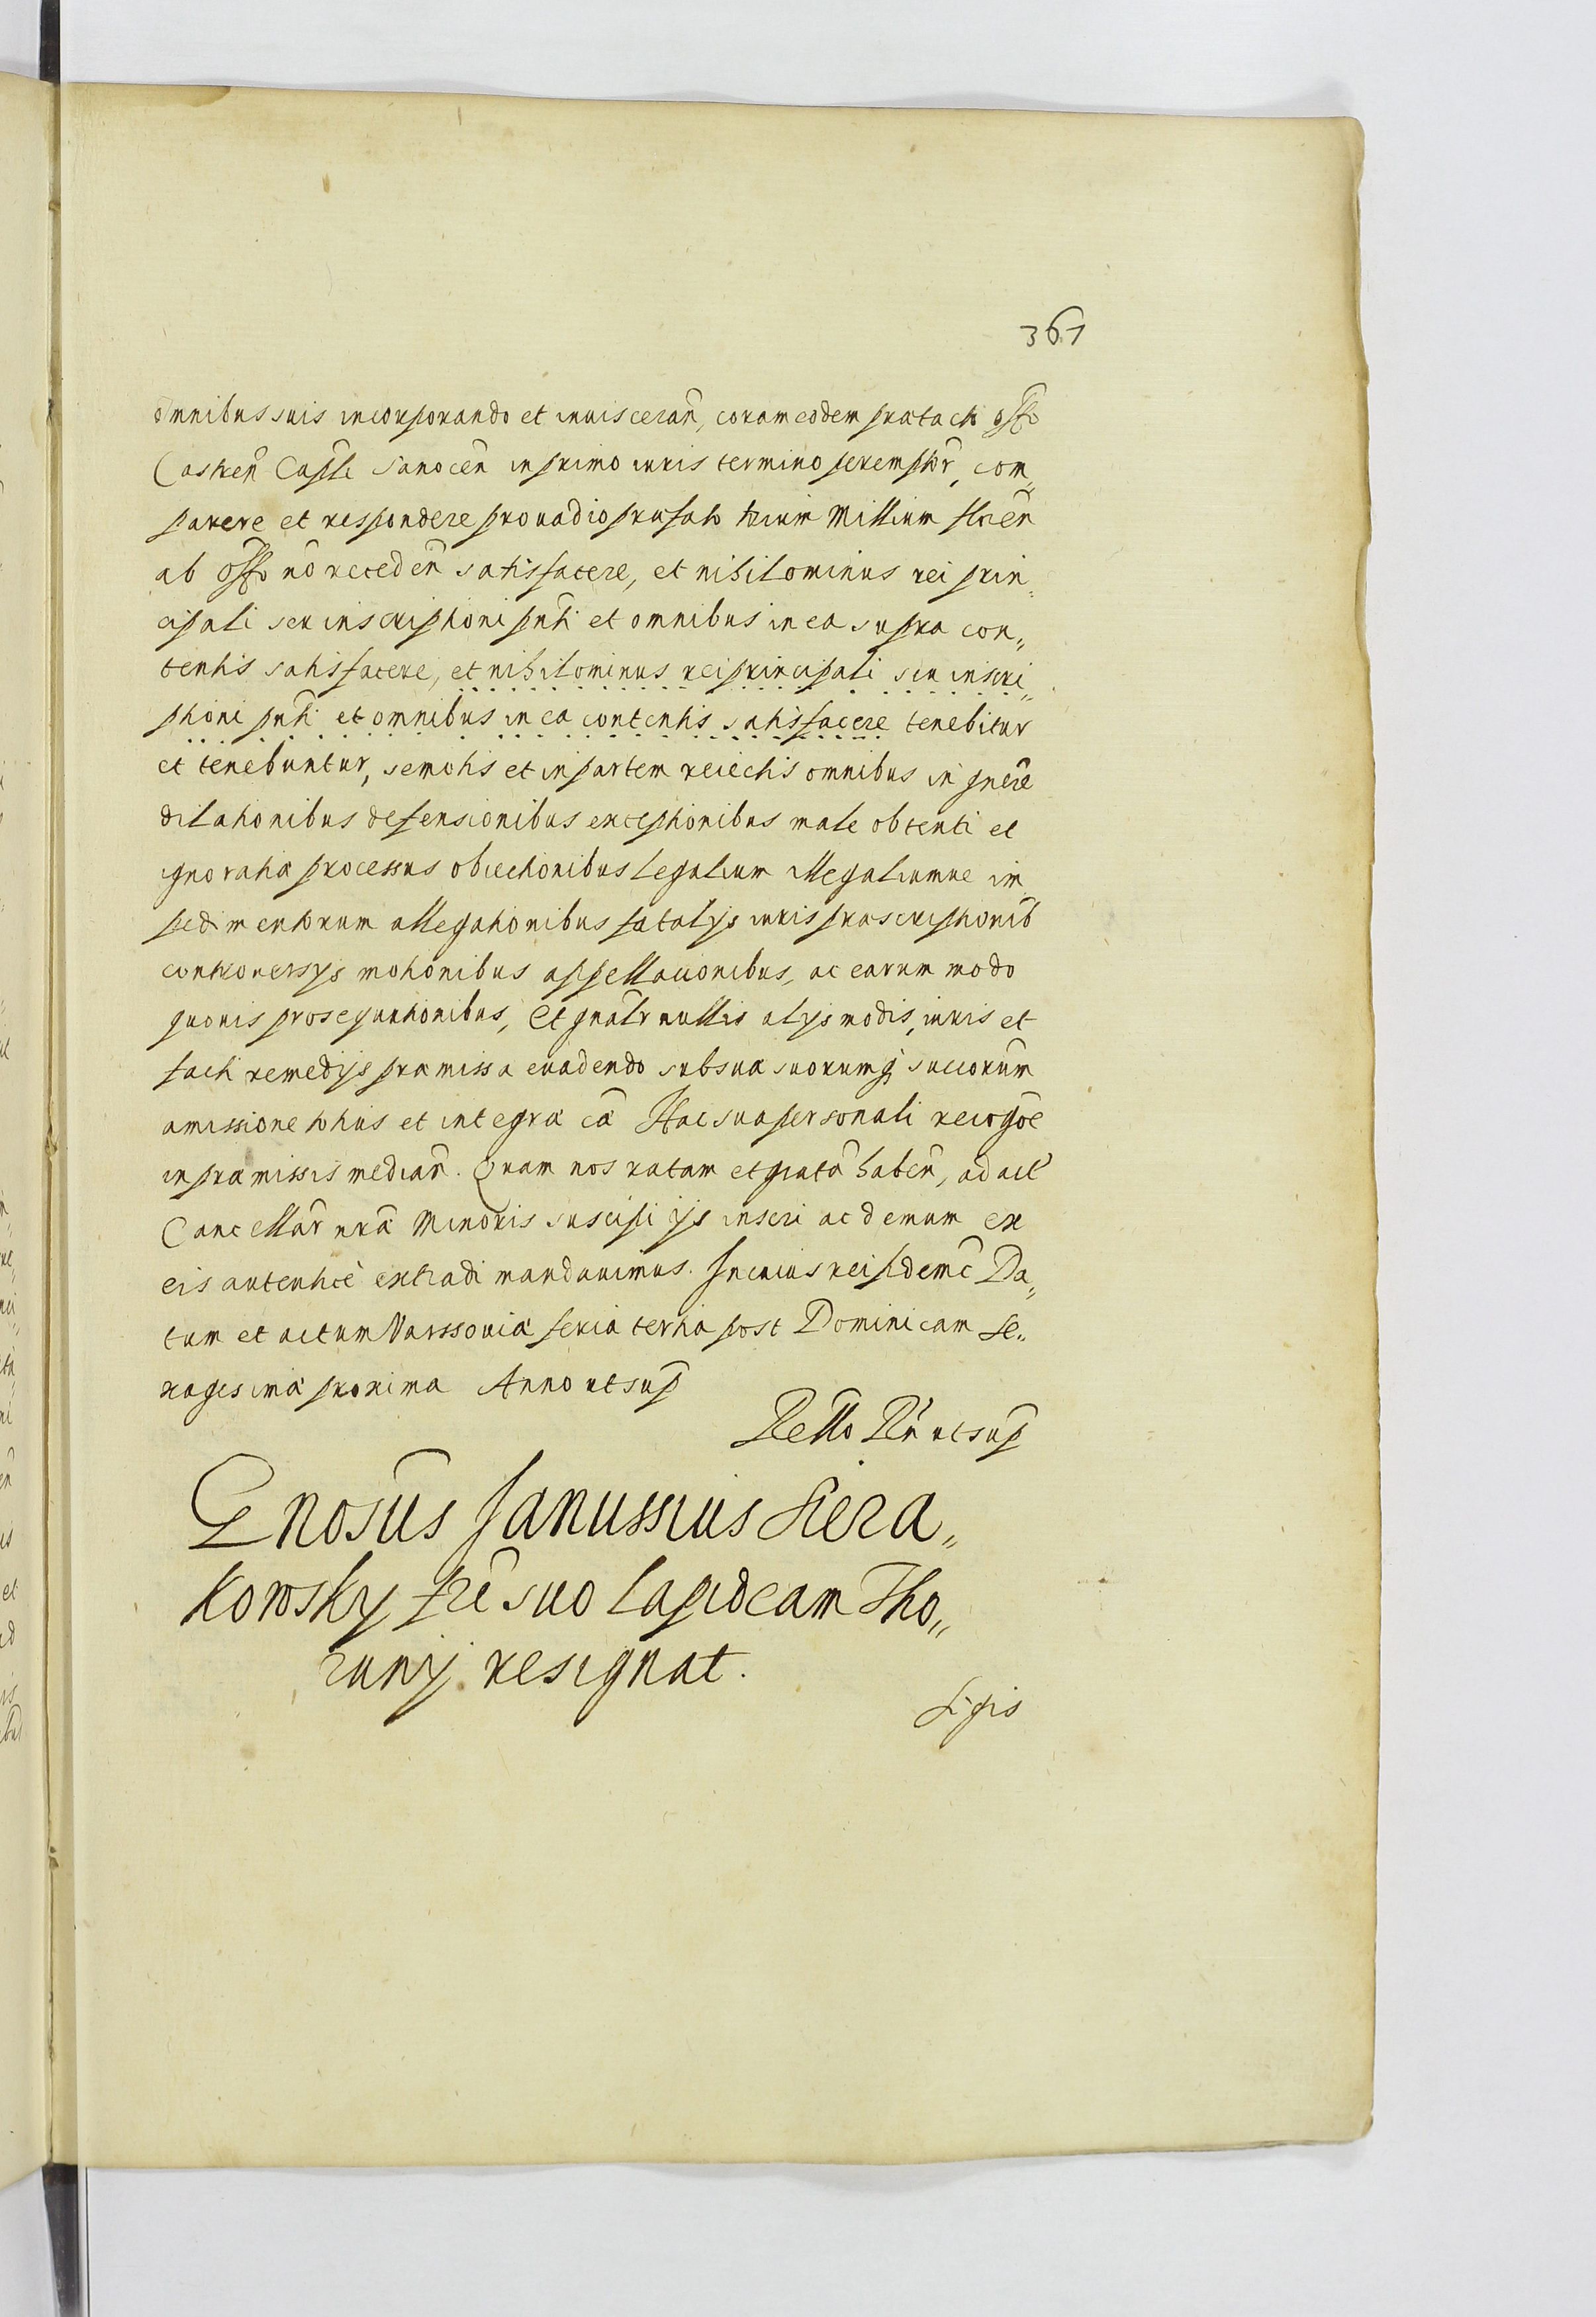 361
omnibus suis incorporando et inuisceran̄, coram eodem prætacti offo
Castren̄ Caplī Sanocen̄ in primo iuris termino peremptor̄, com„
parere et respondere pro vadio præfato trium Millium floren̄
ab offo nō receden̄ satisfacere, et nihilominus rei prin„
cipali seu inscriptioni pn̄ti et omnibus in ea supra con„
tentis satisfacere, et nihilominus rei principali seu inscri„
ptioni pn̄ti et omnibus in ea contentis satisfacere tenebitur
et tenebuntur, semotis et in partem reiectis omnibus in gn̄ere
dilationibus defensionibus exceptionibus male obtenti et
ignoratiæ processus obiectionibus legalium illegaliumue im„
pedimentorum allegationibus fatalijs iuris præscriptionib
controuersijs motionibus appellationibus, ac earum modo
quouis prosequutionibus, Et gnālr nullis alijs modis, iuris et
facti remedijs præmissa euadendo sub sua suorumq succorum̄
amissione totius et integræ cā Hac sua personali recogōe
in præmissis median̄. Quam nos ratam et gratā haben̄, ad act̄
Cancellar̄ nrā Minoris suscipi ijs inseri ac demum ex
eis autenticè extradi mandauimus. In cuius rei fidem c̄ Da„
tum et actum Varssouiæ feria tertia post Dominicam Se„
xagesimæ proxima Anno ut sup
Rello R̄n ut sup
Gnosus Janussius Siera„
kowsky frī suo lapideam Tho„
runij resignat.
Sigis